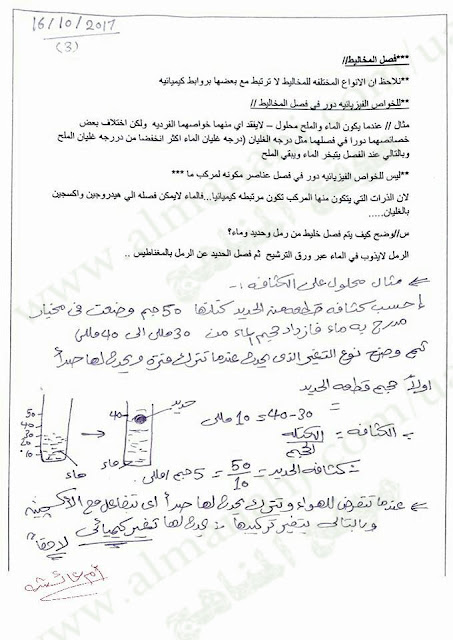 16/10/2017
(3)
***فصل المخاليط//
**نلاحظ ان الانواع المختلفه للمخاليط لا ترتبط مع بعضها بروابط كيميائيه
**للخواص الفيزيائيه دور في فصل المخاليط //
مثال // عندما يكون الماء والملح محلول – لايفقد اي منهما خواصهما الفرديه ولكن اختلاف بعض
خصائصهما دورا في فصلهما مثل درجه الغليان (درجه غليان الماء اكثر انخفضا من دررجه غليان الملح
وبالتالي عند الفصل يتبخر الماء ويبقي الملح
**ليس للخواص الفيزيائيه دور في فصل عناصر مكونه لمركب ما ***
لان الذرات التي يتكون منها المركب تكون مرتبطه كيميائيا...فالماء لايمكن فصله الي هيدروجين واكسجين
بالغليان.....
س//وضح كيف يتم فصل خليط من رمل وحديد وماء؟
الرمل لايذوب في الماء عبر ورق الترشيح ثم فصل الحديد عن الرمل بالمغناطيس ..
← مثال محلول على الكثافه :-
احسب كثافه قطعه من الحديد كتلتها 50 جم وضعت في مخبار
مدرج به ماء فازداد حجم الماء من 30 مللى الى 40 مللى
ثم وضح نوع التغير الذى يحدث عندما تترك فترة ويحدث لها صدأ
اولاً حجم قطعه الحديد
= 40-30 = 10 مللى
∴ الكثافه = الكتله / الحجم
∴ كثافه الحديد = 50/10 = 5 جم / مللى
50
40
30
20
10
ماء
40
حديد
ماء
← عندما تتعرض للهواء وتترك يحدث لها صدأ اى تتفاعل مع الاكسجين
وبالتالى يتغير تركيبها ∴ يحدث لها تغير كيميائى
ام عائشه
www.almanahj.com/uae
موقع المناهج